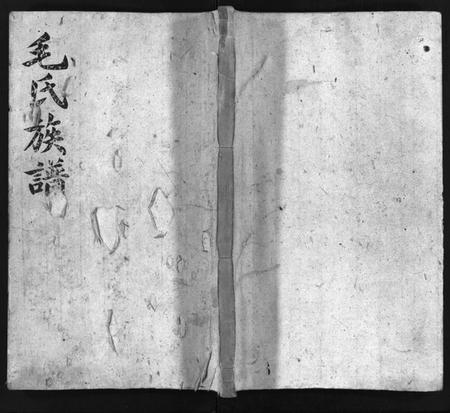 毛氏族譜